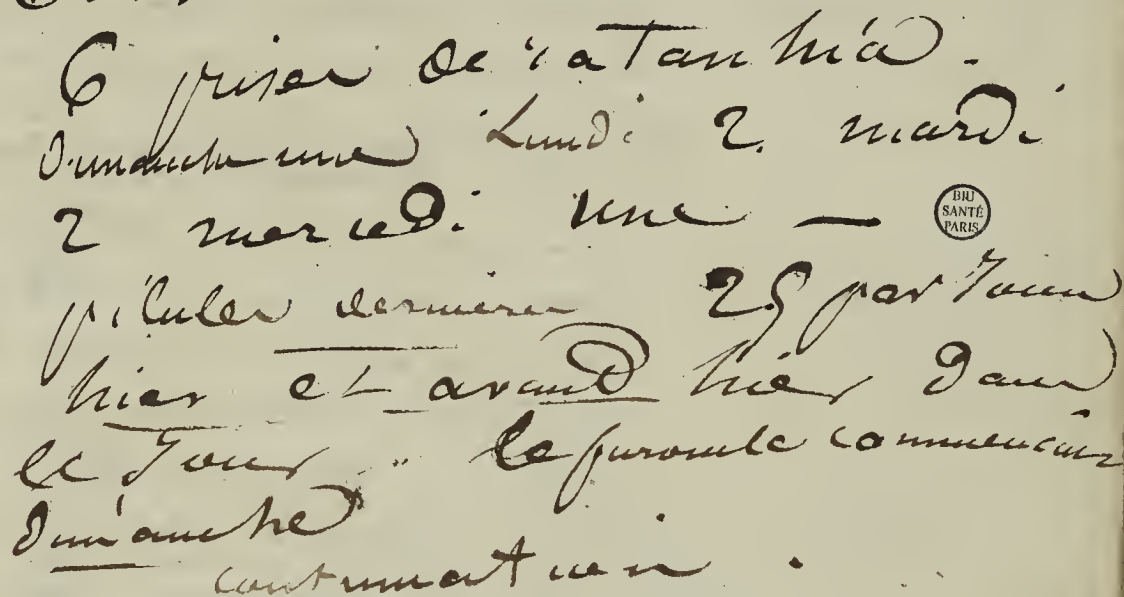 6 prises de ratanhia.
Dimanche une Lundi 2. mardi
2 mercredi une —
BIU
SANTÉ
PARIS
pilules dernieres 25 par Jour
hier et avand hier Dans
le Jour le furoncle commencait
Dimanche
continuation.